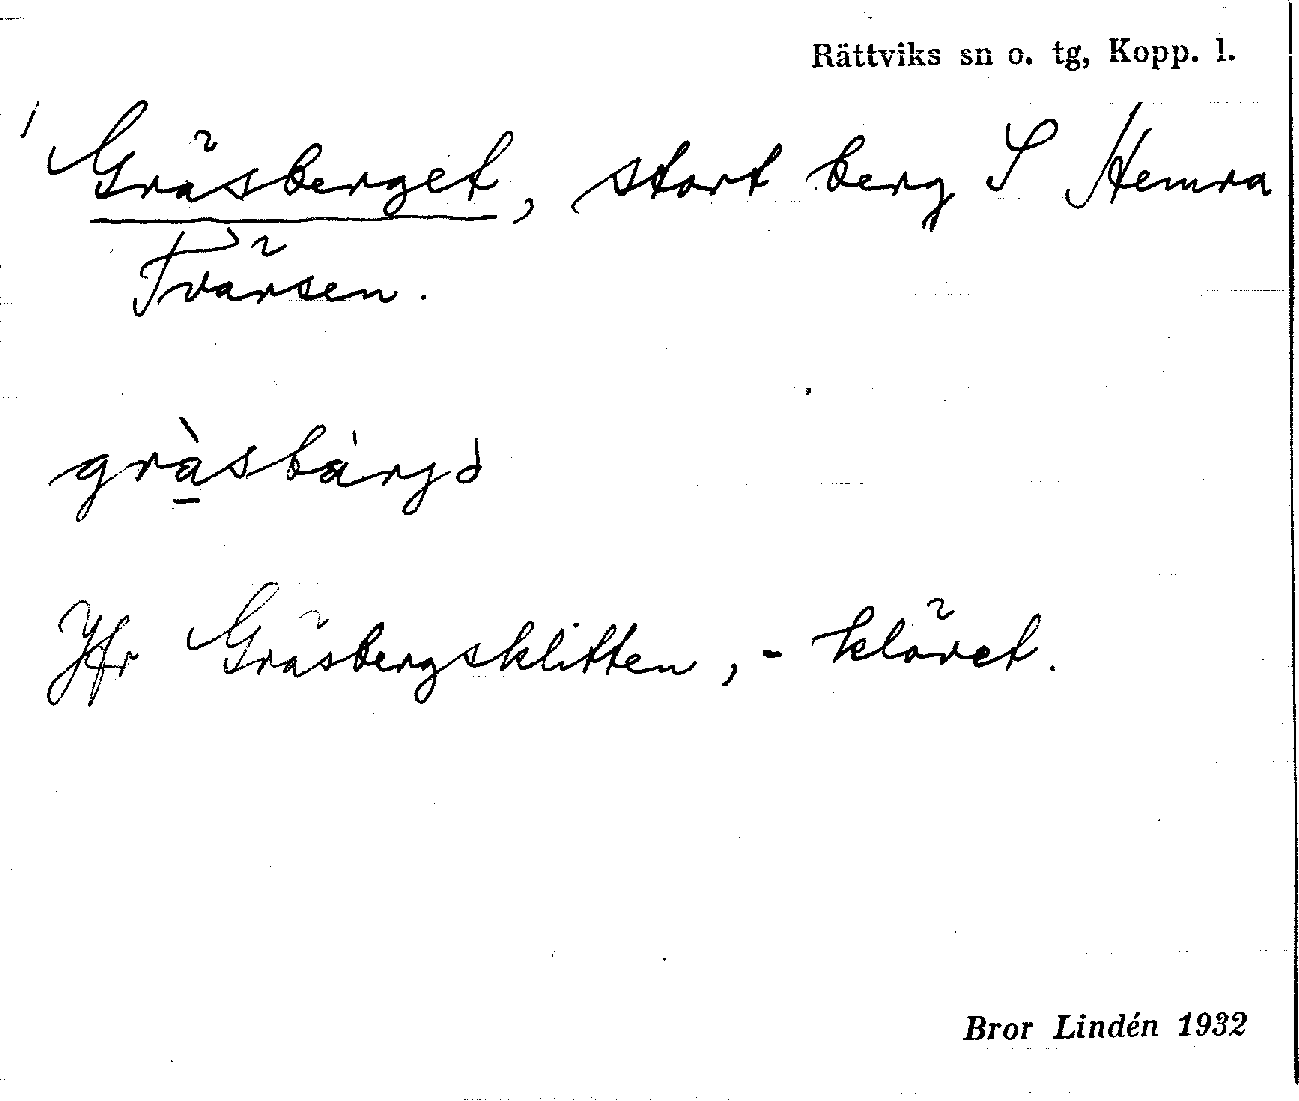 Rättviks sn o. tg, Kopp. l.
Gräsberget, stort berg S Hemra
Tvärsen.
gràsbàrjə
Jfr Gräsbergsklitten, -klövet.
Bror Lindén 1932